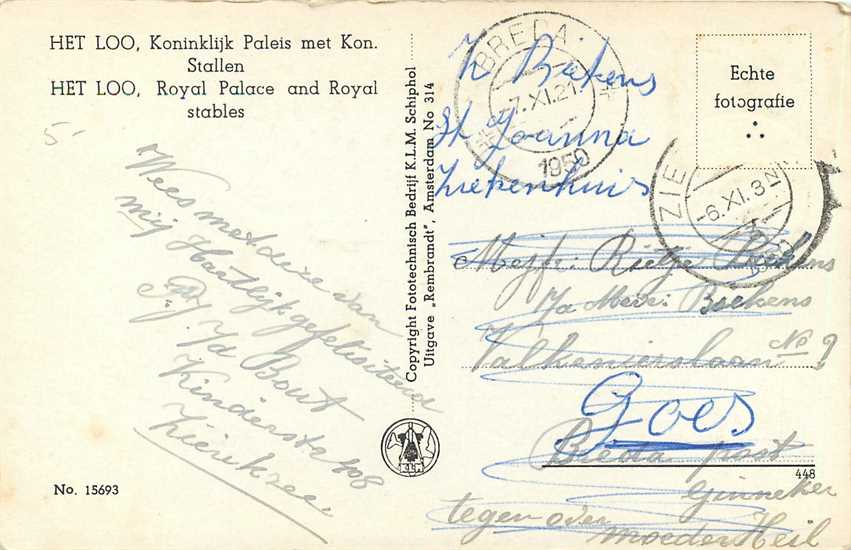 HET LOO, Koninklijk Paleis met Kon.
Stallen
HET LOO, Royal Palace and Royal
stables
5
Wees met deze van
mij Hartlijk gefeliciteerd
v/d Bout
Zierikzee
No. 15693
Copyright Fototechnisch Bedrijf K.L.M. Schiphol
Uitgave „Rembrandt”, Amsterdam No 314
BREDA
-7.XI.21
1950
Echte
fotografie
ZIE
-6.XI.8
N
St Joanna
Ziekenhuis
Mejfr: Rietje Boekens
p/a Mevr: Boekens
Valkenierslaan No ?
Goes
Breda post
Ginneken
tegen over moederHeil
448